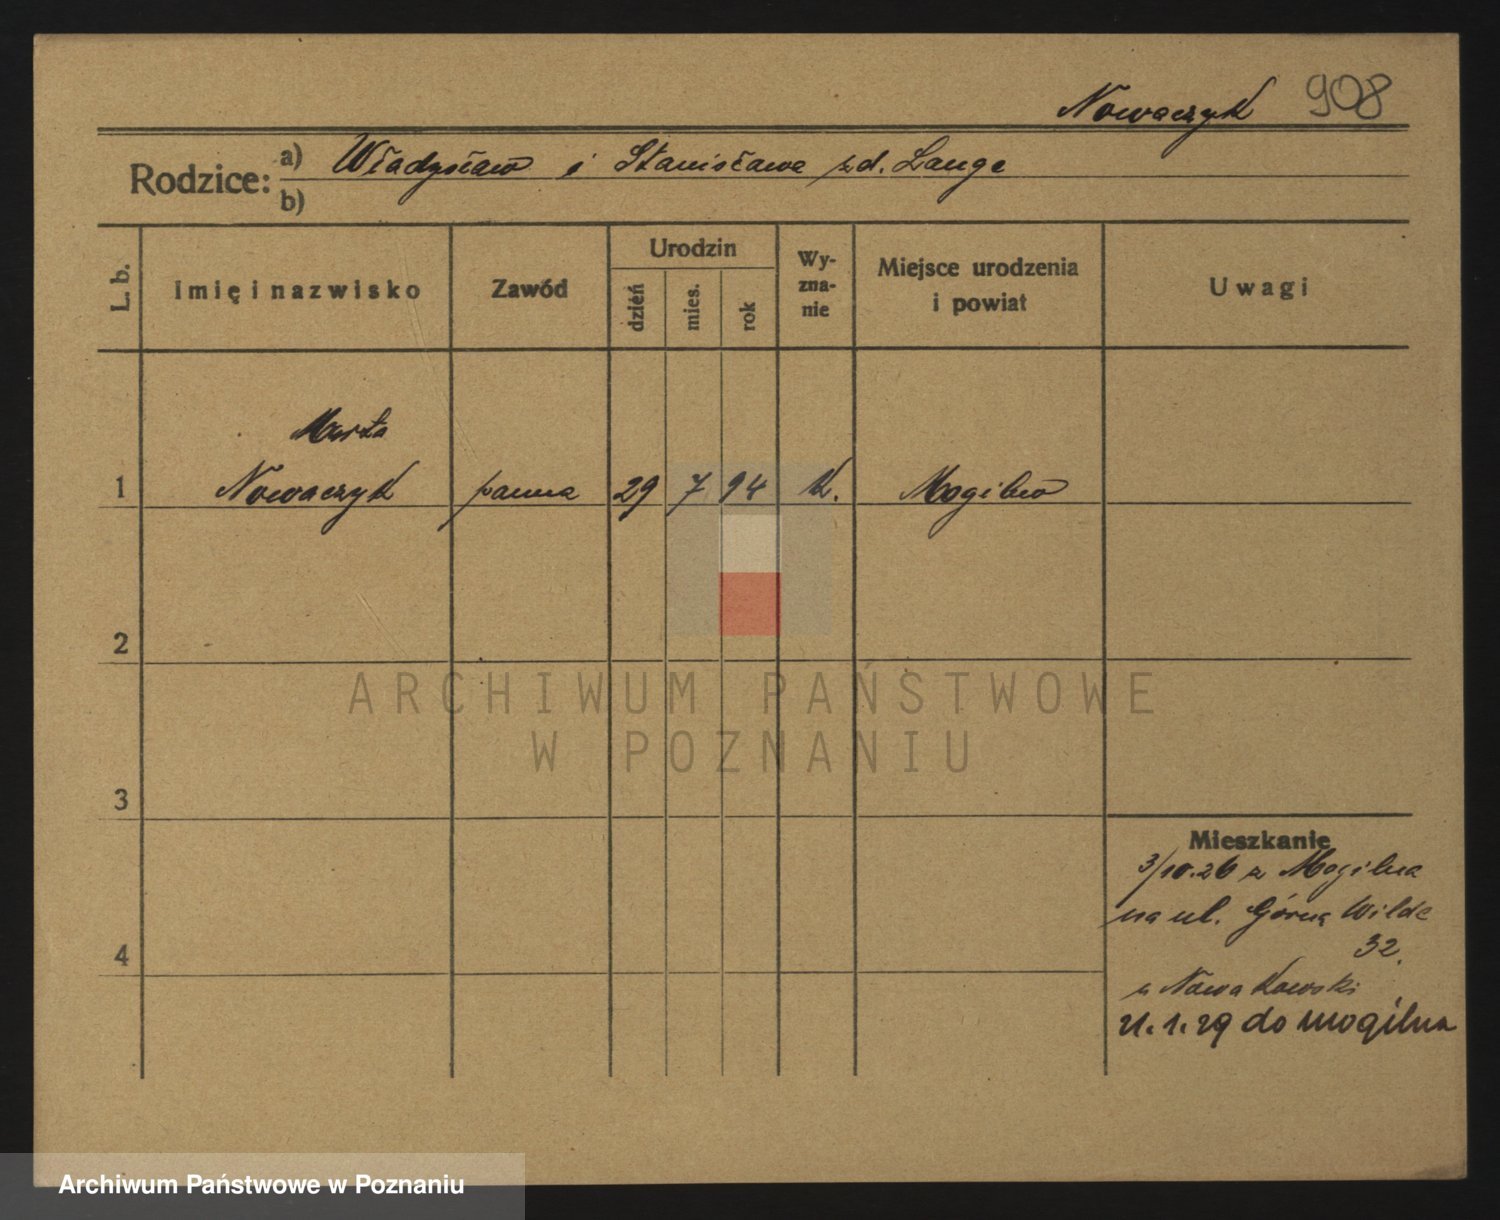 Nowaczyk 908
Rodzice: a) Władysław i Stanisława zd. Lange
b)
L. b. Imię i nazwisko Zawód Urodzin dzień mies. rok Wyznanie Miejsce urodzenia i powiat Uwagi
Marta
1 Nowaczyk panna 29 7 94 k. Mogilno
2
ARCHIWUM PAŃSTWOWE
W POZNANIU
3
Mieszkanie
3/10.26 z Mogilna
na ul. Górną Wildę
32.
4
u Nowakowski
21.1.29 do Mogilna
Archiwum Państwowe w Poznaniu